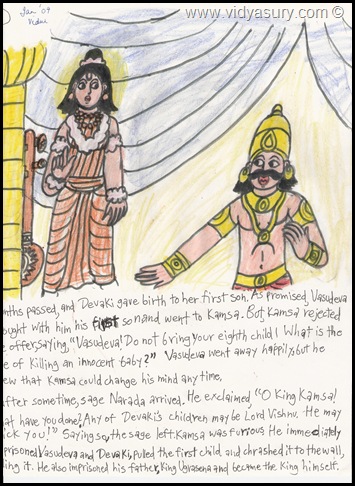 www.vidyasury.com ©
Jan '09
nths passed, and Devaki gave birth to her first son. As promised, Vasudeva
ought with him his first son and went to Kamsa. But, Kamsa rejected
e offer, saying, "Vasudeva! Do not bring your eighth child! What is the
e of killing an innocent baby?" Vasudeva went away happily, but he
ew that Kamsa could change his mind any time.
After sometime, sage Narada arrived. He exclaimed, "O King Kamsa!
at have you done? Any of Devaki's children may be Lord Vishnu. He may
ick you!" Saying so, the sage left. Kamsa was furious. He immediately
prisoned Vasudeva and Devaki, pulled the first child and chrashed it to the wall,
ling it. He also imprisoned his father, King Ugrasena and became the King himself.